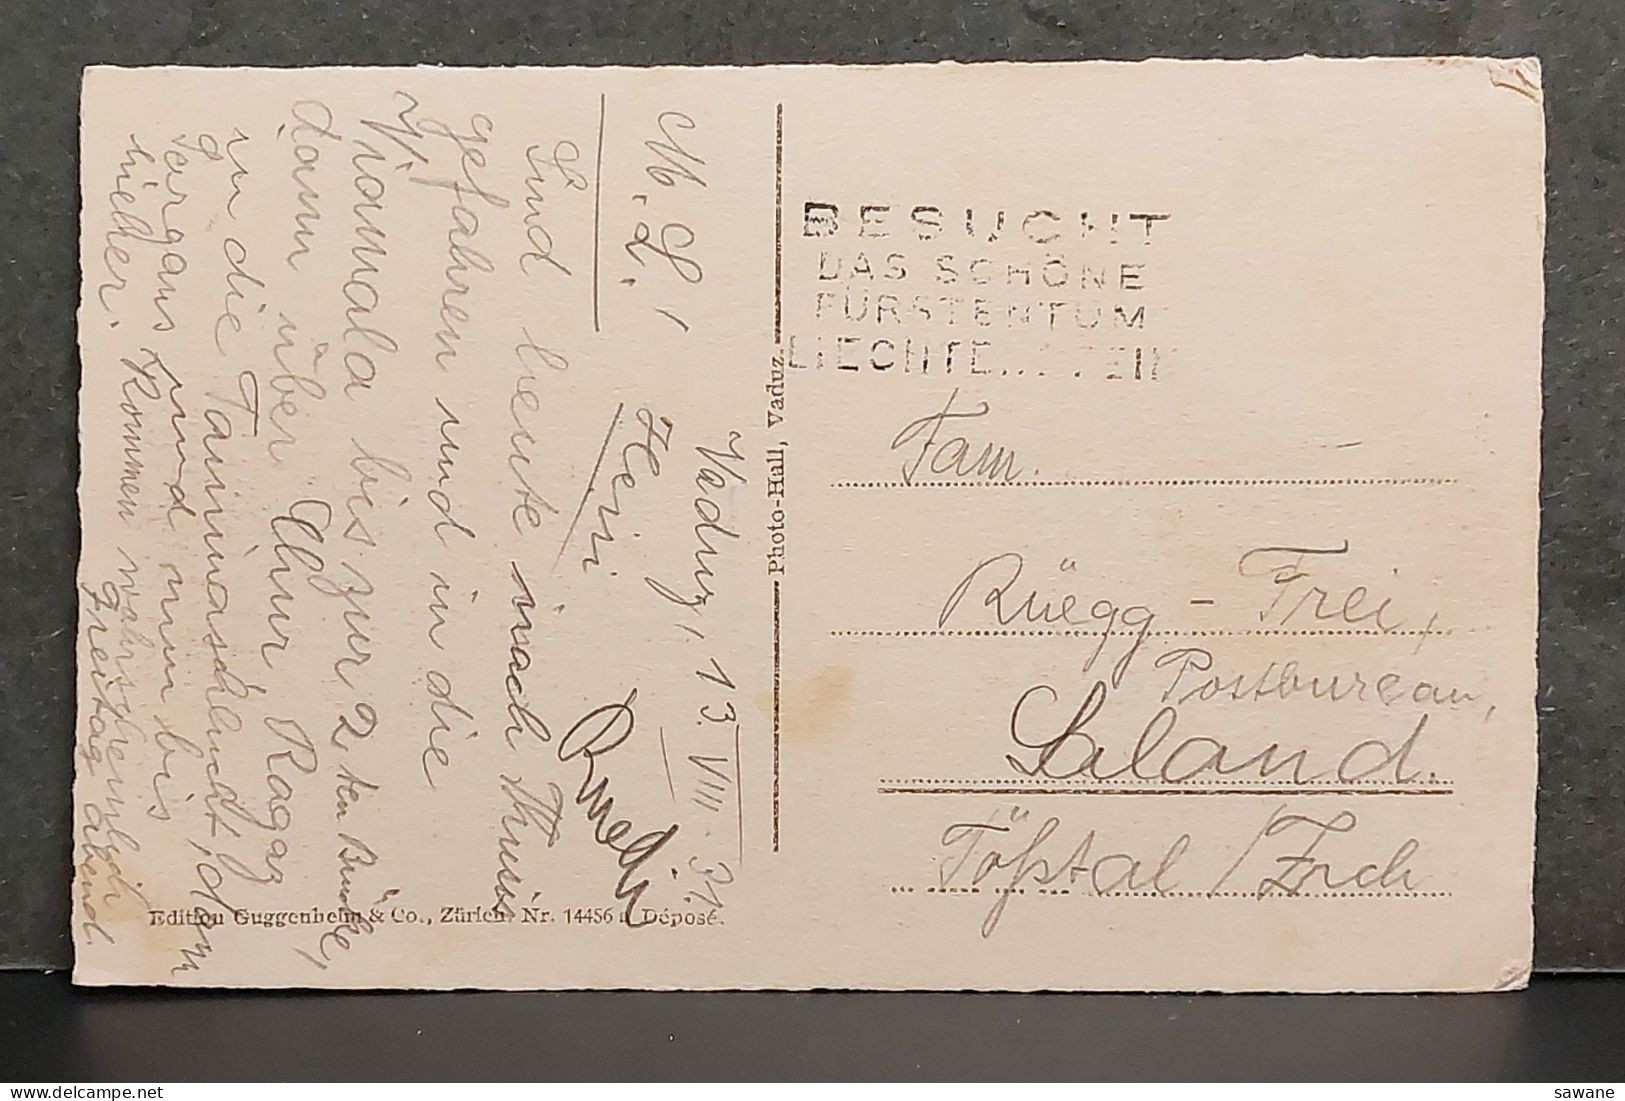 Vaduz, 13. VIII. 31.
M. L. !
Sind heute nach Thusis
gefahren und in die
Viamala bis zur 2ten Brücke,
dann über Chur, Ragaz
in die Taminaschlucht, dann
Sargans und nun bis
hieher. Kommen wahrscheinlich
Freitag abend.
Heini
Ruedi
Photo-Hall, Vaduz.
Edition Guggenheim & Co., Zürich, Nr. 14456 a Déposé.
BESUCHT
DAS SCHÖNE
FÜRSTENTUM
LIECHTE...TEIN
Fam.
Rüegg - Frei,
Postbureau,
Saland.
Tößtal / Zrch
sawane